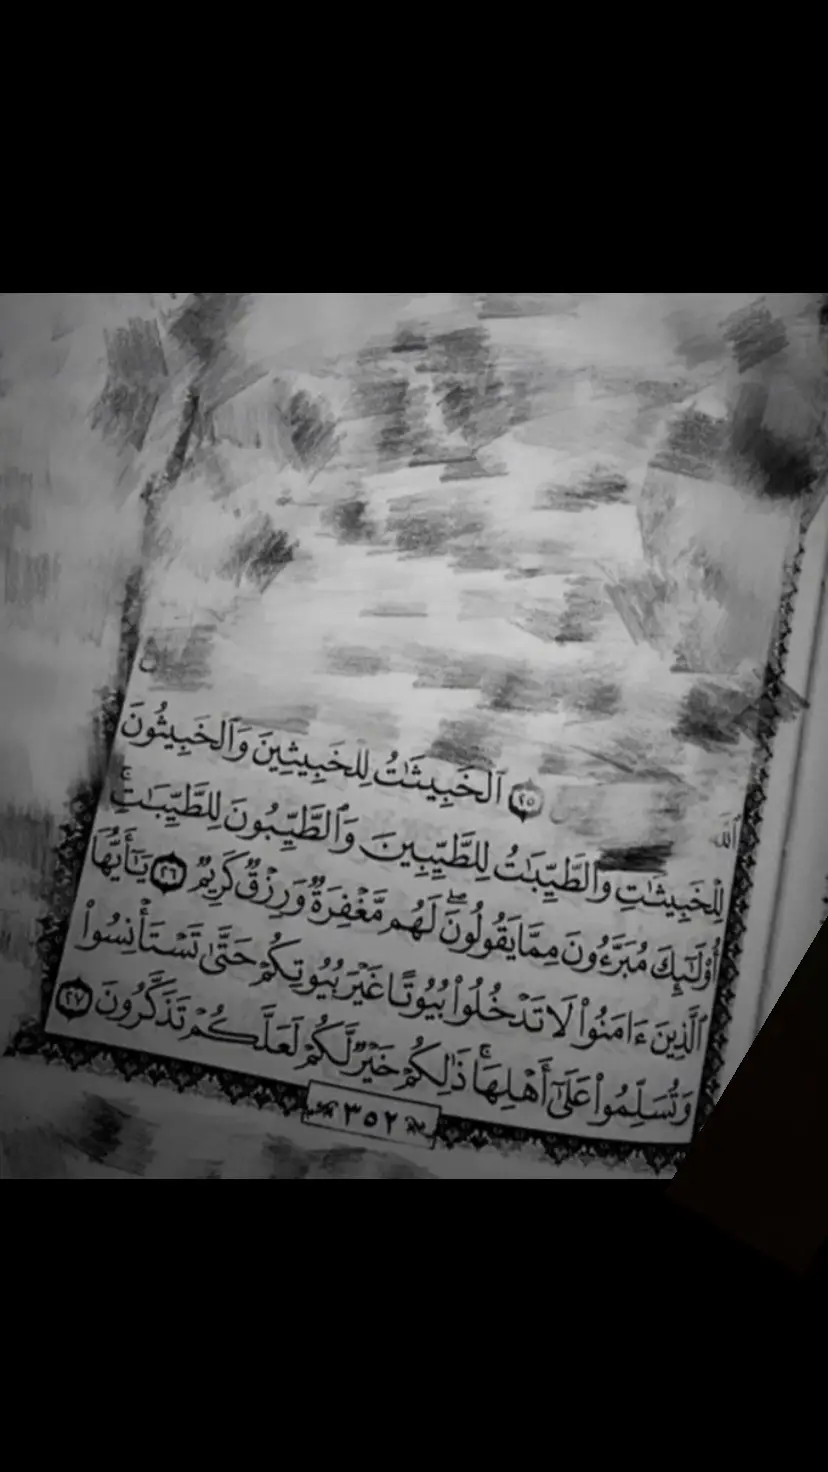 ٱللَّه
۝٢٥ ٱلْخَبِيثَٰتُ لِلْخَبِيثِينَ وَٱلْخَبِيثُونَ
لِلْخَبِيثَٰتِ وَٱلطَّيِّبَٰتُ لِلطَّيِّبِينَ وَٱلطَّيِّبُونَ لِلطَّيِّبَٰتِۚ
أُوْلَٰٓئِكَ مُبَرَّءُونَ مِمَّا يَقُولُونَۖ لَهُم مَّغْفِرَةٌ وَرِزْقٌ كَرِيمٌ ۝٢٦ يَٰٓأَيُّهَا
ٱلَّذِينَ ءَامَنُوا۟ لَا تَدْخُلُوا۟ بُيُوتًا غَيْرَ بُيُوتِكُمْ حَتَّىٰ تَسْتَأْنِسُوا۟
وَتُسَلِّمُوا۟ عَلَىٰٓ أَهْلِهَاۚ ذَٰلِكُمْ خَيْرٌ لَّكُمْ لَعَلَّكُمْ تَذَكَّرُونَ ۝٢٧
٣٥٢